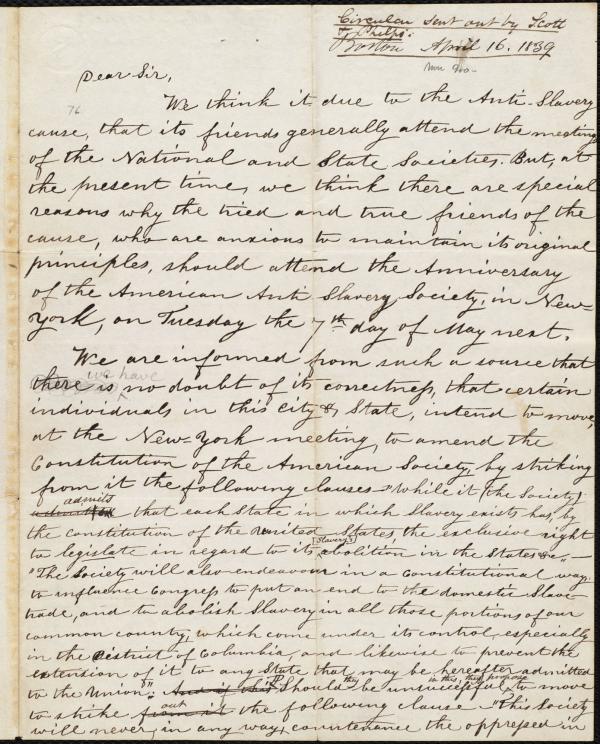 Circular sent out by Scott
& Phelps.
Boston April 16. 1839
Dear Sir,
76
We think it due to the Anti-Slavery
cause, that its friends generally attend the meetings
of the National and State Societies. But, at
the present time, we think there are special
reasons why the tried and true friends of the
cause, who are anxious to maintain its original
principles, should attend the Anniversary
of the American Anti Slavery Society, in New-
York, on Tuesday the 7th day of May next.
We are informed from such a source that
we have
there is no doubt of its correctness, that certain
individuals in this city & State, intend to move,
at the New-York meeting, to amend the
Constitution of the American Society, by striking
from it the following clauses—"While it (the Society)
admits
that each State in which Slavery exists has, by
the constitution of the United States, the exclusive right
to legislate in regard to its [Slavery's] abolition in the States &c"—
"The Society will also endeavour in a Constitutional way
to influence Congress to put an end to the domestic Slave-
trade, and to abolish Slavery in all those portions of our
common county, which come under its control, especially
in the District of Columbia, and likewise to prevent the
extension of it to any State that may be hereafter admitted
to the Union." And if this Should they be unsuccessful in this, they propose to move
to strike from it out the following clause "This Society
will never, in any way, countenance the oppressed in